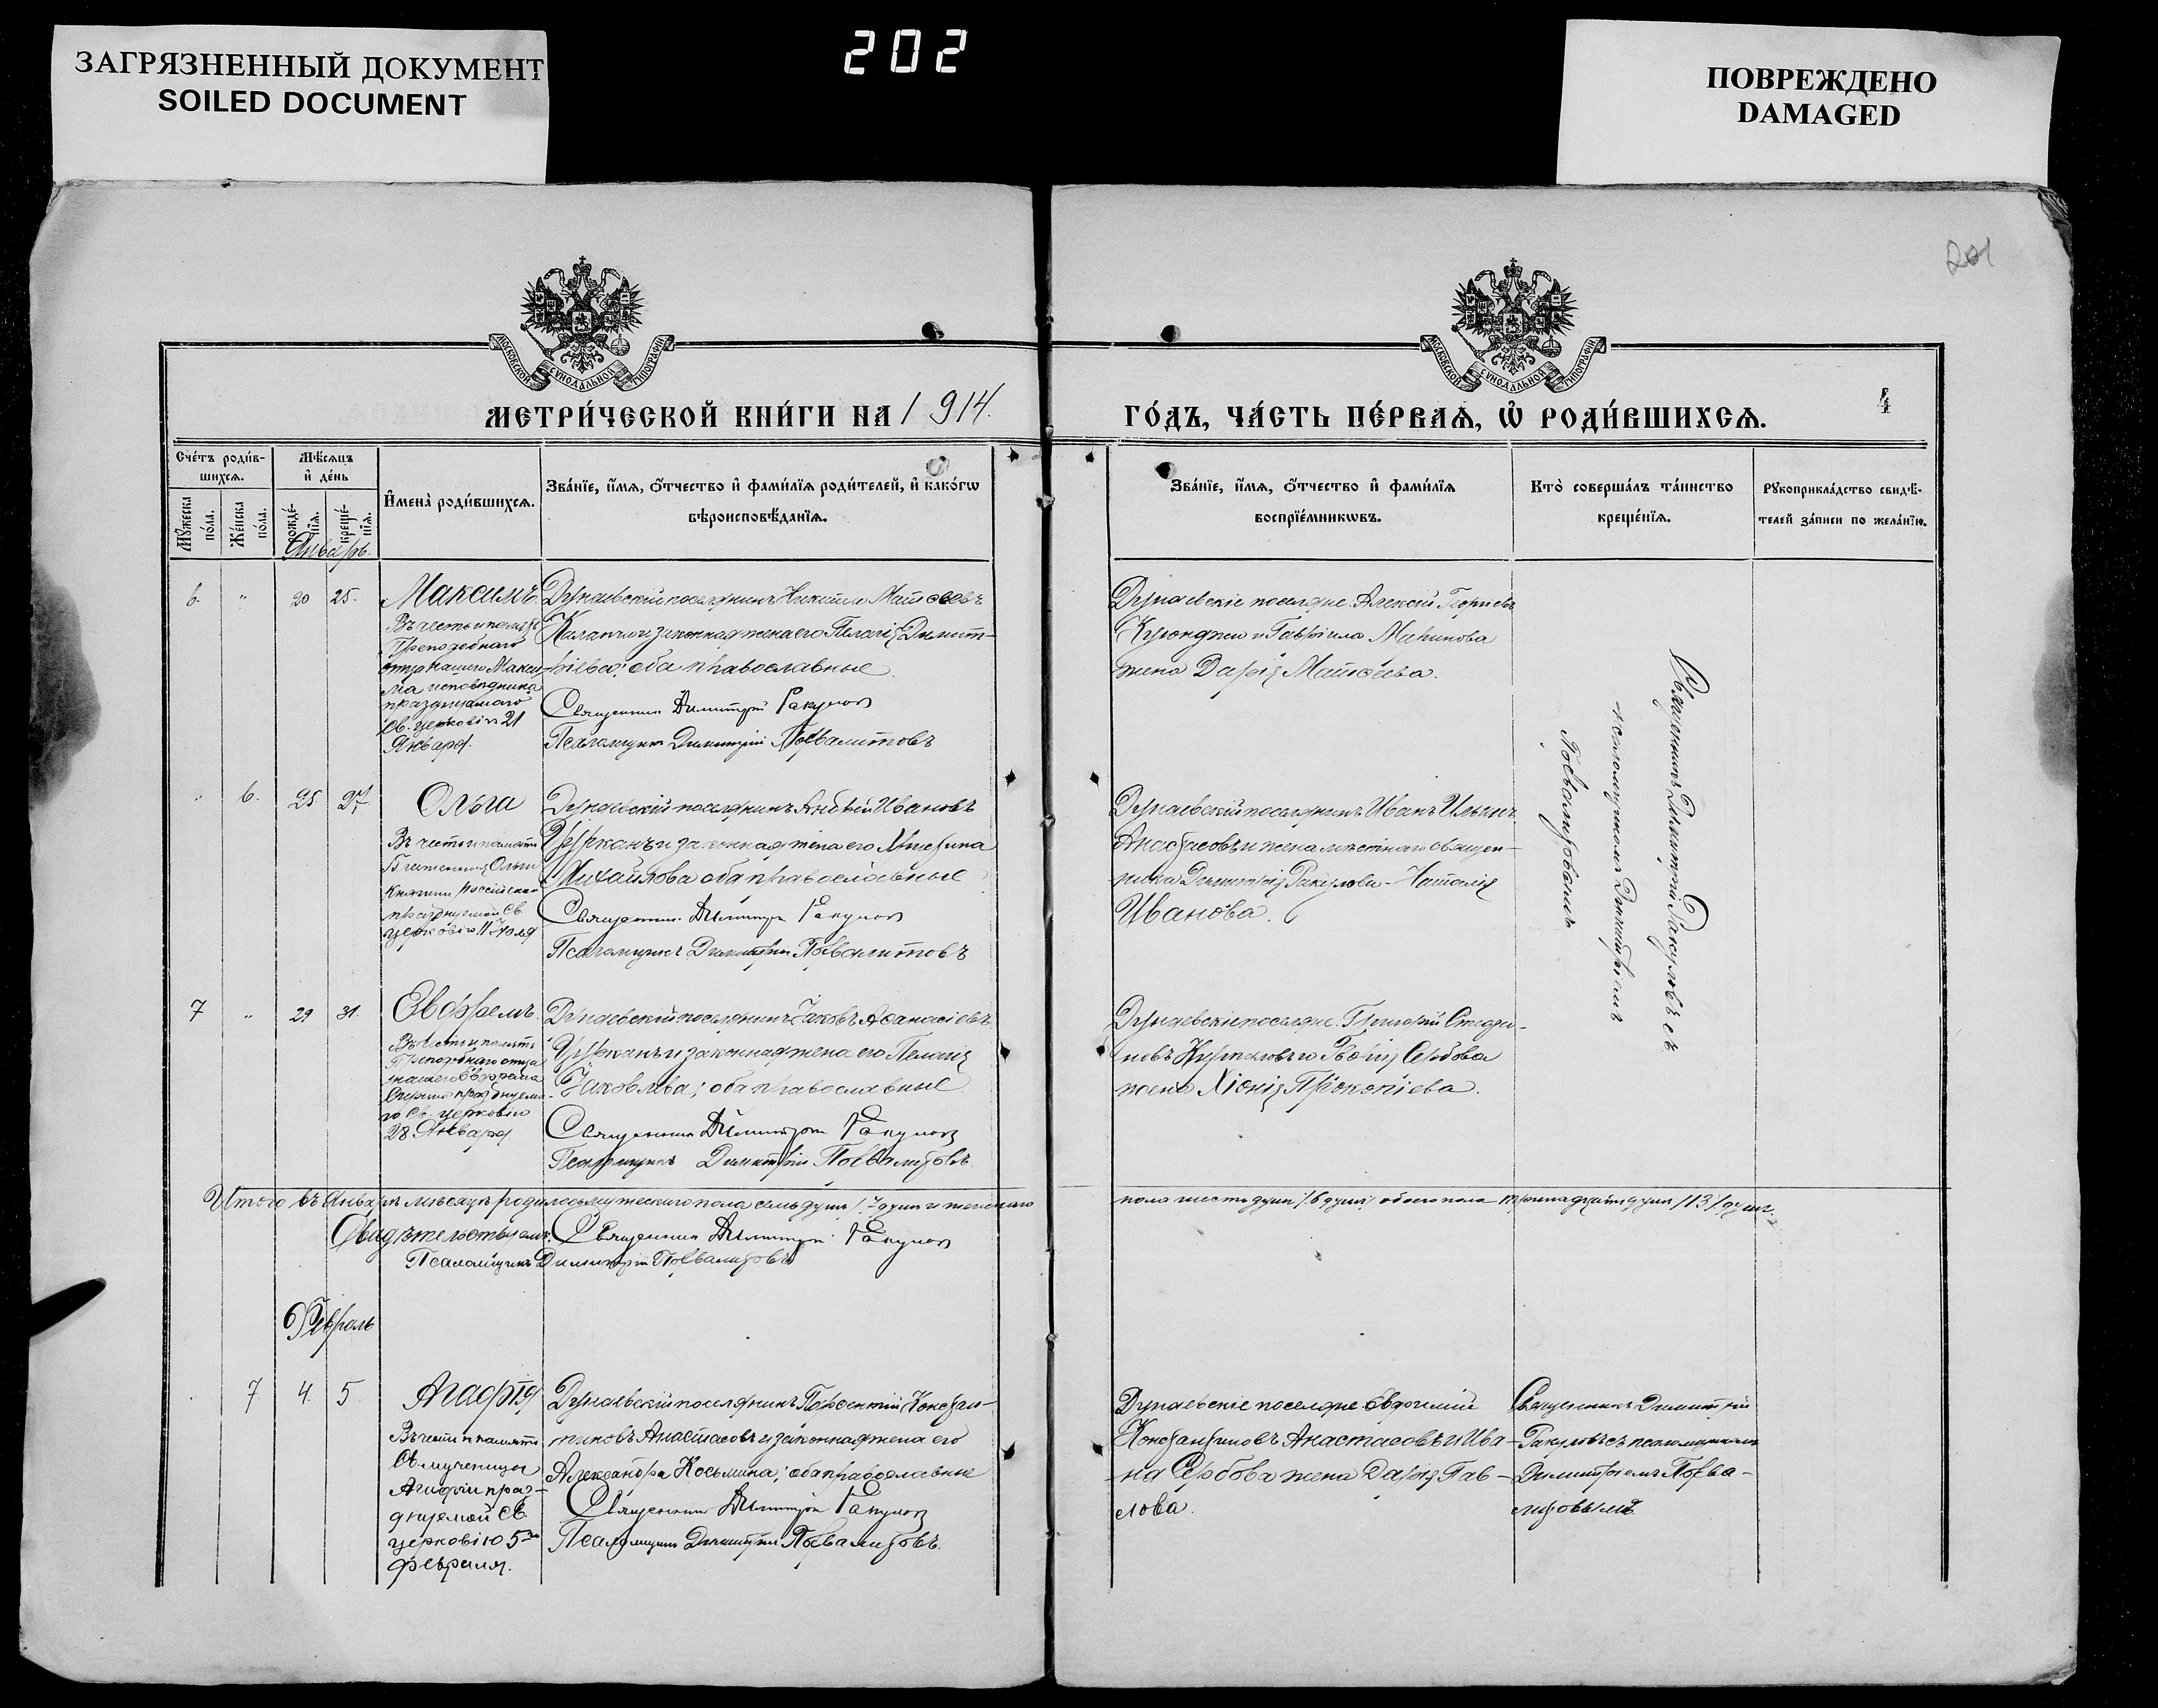 ЗАГРЯЗНЕННЫЙ ДОКУМЕНТ
SOILED DOCUMENT
202
ПОВРЕЖДЕНО
DAMAGED
201
МОСКОВСКОЙ СѴНОДАЛЬНОЙ ТИПОГРАФІИ
МОСКОВСКОЙ СѴНОДАЛЬНОЙ ТИПОГРАФІИ
МЕТРИ́ЧЕСКОЙ КНИ́ГИ НА 1914.
ГО́ДЪ, ЧА́СТЬ ПЕ́РВАѦ, Ѡ҆ РОДИ́ВШИХСѦ.
4
Сче́тъ роди́в-
шихсѧ.
Мѣ́сѧцъ
и҆ де́нь
Мꙋ́жеска
по́ла.
Же́нска
по́ла.
рожде́-
нїѧ.
креще́-
нїѧ.
И҆мена̀ роди́вшихсѧ.
Зва́нїе, и҆́мѧ, ѻ҆́тчество и҆ фами́лїѧ роди́телей, и҆ како́гѡ
вѣроисповѣ́данїѧ.
Зва́нїе, и҆́мѧ, ѻ҆́тчество и҆ фами́лїѧ
воспрїе́мникѡвъ.
Кто̀ соверша́лъ та́инство
креще́нїѧ.
Рꙋкоприкла́дство свидѣ́-
телей за́писи по жела́нїю.
Январь.
6. " 20 25. Максимъ
Въ честь и память
Преподобнаго
отца нашего Макси-
ма исповѣдника
празднуемаго
Св. церковію 21
Января.
Дунаевскій поселянинъ Никита Матѳеевъ
и законная жена его Пелагія Димит-
ріева; оба православные.
Священникъ Димитрій Ракуловъ
Псаломщикъ Димитрій
Дунаевскіе поселяне: Алексій Георгіевъ
Куюнджи и Гавріила Маринова
жена Дарія Матѳеева.
Священникъ Димитрій Ракуловъ съ
псаломщикомъ Димитріемъ
" 6. 25 27 Ольга
Въ честь и память
Блаженныя Ольги
Княгини Россійской
празднуемой Св
церковію 11 Іюля
Дунаевскій поселянинъ Андрей Ивановъ
и законная жена его
Михайлова оба православные
Священникъ Димитрій Ракуловъ
Псаломщикъ Димитрій
Дунаевскій поселянинъ Иванъ Ильинъ
Анастасовъ и жена мѣстнаго священ-
ника Димитрія Ракулова - Наталія
Иванова.
7 " 29 31. Ефремъ
Въ честь и память
Преподобнаго отца
нашего Ефрема
Сирина празднуема-
го Св. церковію
28 Января
Дунаевскій поселянинъ Іаковъ Аѳанасіевъ
и законная жена его Пелагія
Іаковлева; оба православные
Священникъ Димитрій Ракуловъ
Псаломщикъ Димитрій
Дунаевскіе поселяне: Григорій Стефа-
новъ и Сербова
жена Хіонія Прокопіева.
Итого въ Январѣ мѣсяцѣ родилось мужескаго пола семь душъ /7 душъ и женскаго
пола шесть душъ /6 душъ/ обоего пола тринадцать душъ /13/ душъ.
Свидѣтельствуемъ: Священникъ Димитрій Ракуловъ
Псаломщикъ Димитрій
Февраль
7 4. 5 Агафія
Въ честь и память
Св. мученицы
Агафіи праз-
днуемой Св.
церковію 5го
февраля.
Дунаевскій поселянинъ Константи-
новъ Анастасовъ и законная жена его
Александра Косьмина; оба православные
Священникъ Димитрій Ракуловъ
Псаломщикъ Димитрій
Дунаевскіе поселяне Евфимій
Константиновъ Анастасовъ и Ива-
на Сербова жена Дарія Пав-
лова.
Священникъ Димитрій
Ракуловъ съ псаломщикомъ
Димитріемъ